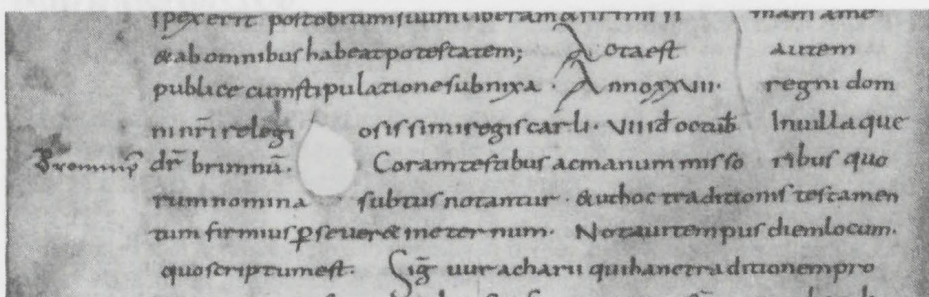 & ab omnibus habeat potestatem; Acta est autem
publice cum stipulatione subnixa. Anno xxviii. regni dom
ni nr̄i relegi osissimi regis carli. viii id octub̄ In uilla que
dr̄ brimnū. Coram testibus ac manum misso ribus quo
rum nomina subtus notantur. & ut hoc traditionis testamen
tum firmius ꝑseuer& in eternum. Notaui tempus diem locum.
quo scriptum est. Sig̅ uuracharii qui hanc traditionem pro